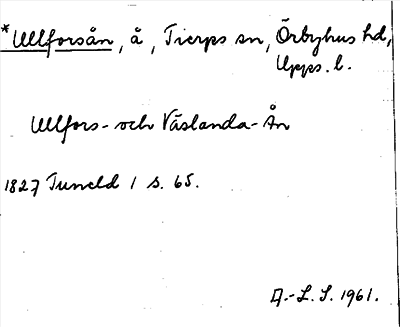 *Ullforsån, å, Tierps sn, Örbyhus hd,
Upps. l.
Ullfors- och Våslanda-Ån
1827 Tuneld 1 s. 65.
A.-L. S. 1961.